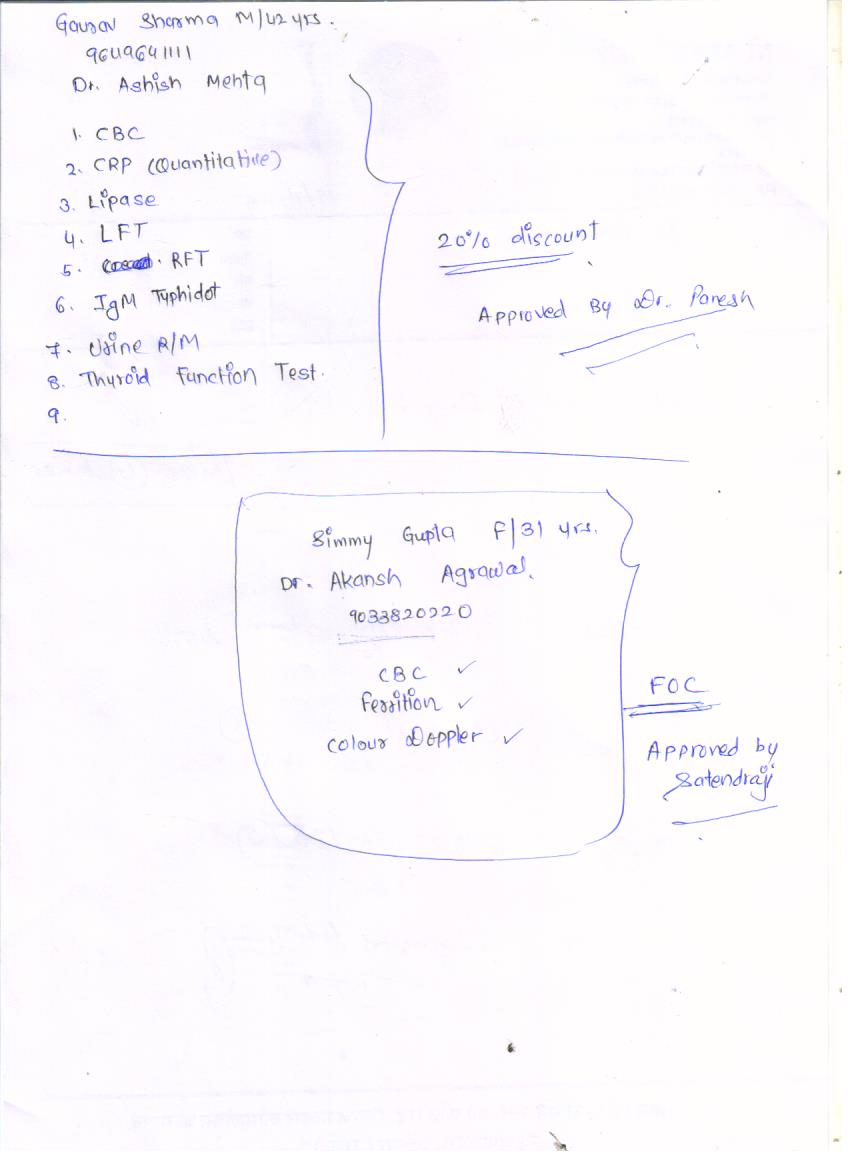 Gaurav Sharma M/42 yrs.
9649641111
Dr. Ashish Mehta
1. CBC
2. CRP (Quantitative)
3. Lipase
4. LFT
5. RFT
6. IgM Typhidot
7. Urine R/M
8. Thyroid Function Test.
9.
20% discount
Approved By Dr. Paresh
Simmy Gupta F/31 yrs.
Dr. Akansh Agrawal.
9033820220
CBC ✓
Ferrition ✓
Colour Doppler ✓
FOC
Approved by
Satendraji